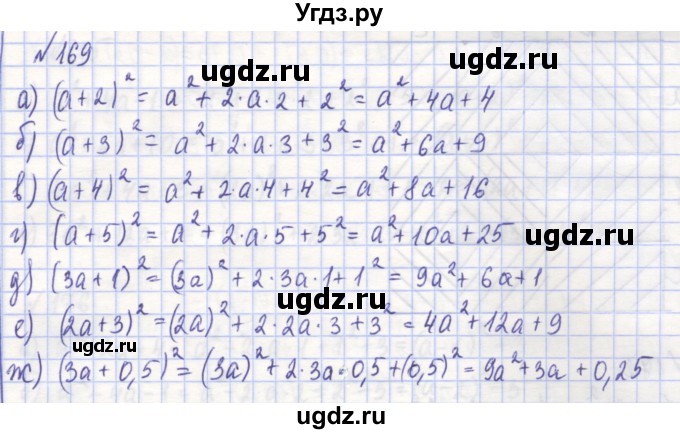 Угдз.ру
№169
ugdz.ru
а) (a+2)² = a² + 2·a·2 + 2² = a² + 4a + 4
б) (a+3)² = a² + 2·a·3 + 3² = a² + 6a + 9
ugdz.ru
в) (a+4)² = a² + 2·a·4 + 4² = a² + 8a + 16
г) (a+5)² = a² + 2·a·5 + 5² = a² + 10a + 25
ugdz.ru
д) (3a+1)² = (3a)² + 2·3a·1 + 1² = 9a² + 6a + 1
е) (2a+3)² = (2a)² + 2·2a·3 + 3² = 4a² + 12a + 9
ugdz.ru
ugdz.ru
ж) (3a+0,5)² = (3a)² + 2·3a·0,5 + (0,5)² = 9a² + 3a + 0,25
ugdz.ru